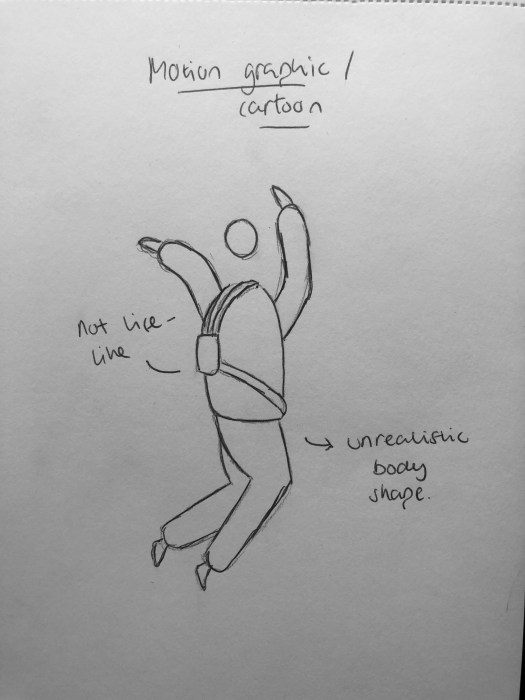 Motion graphic /
cartoon
not life-
like
unrealistic
body
shape.